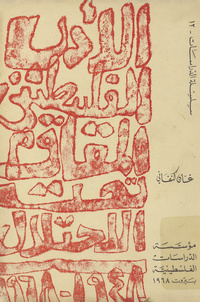 سلسلة الدراسات - ١٢
الأدب
الفلسطيني
المقاوم
تحت
الاحتلال
١٩٤٨ - ١٩٦٨
غسان كنفاني
مؤسسة
الدراسات
الفلسطينية
بيروت ١٩٦٨